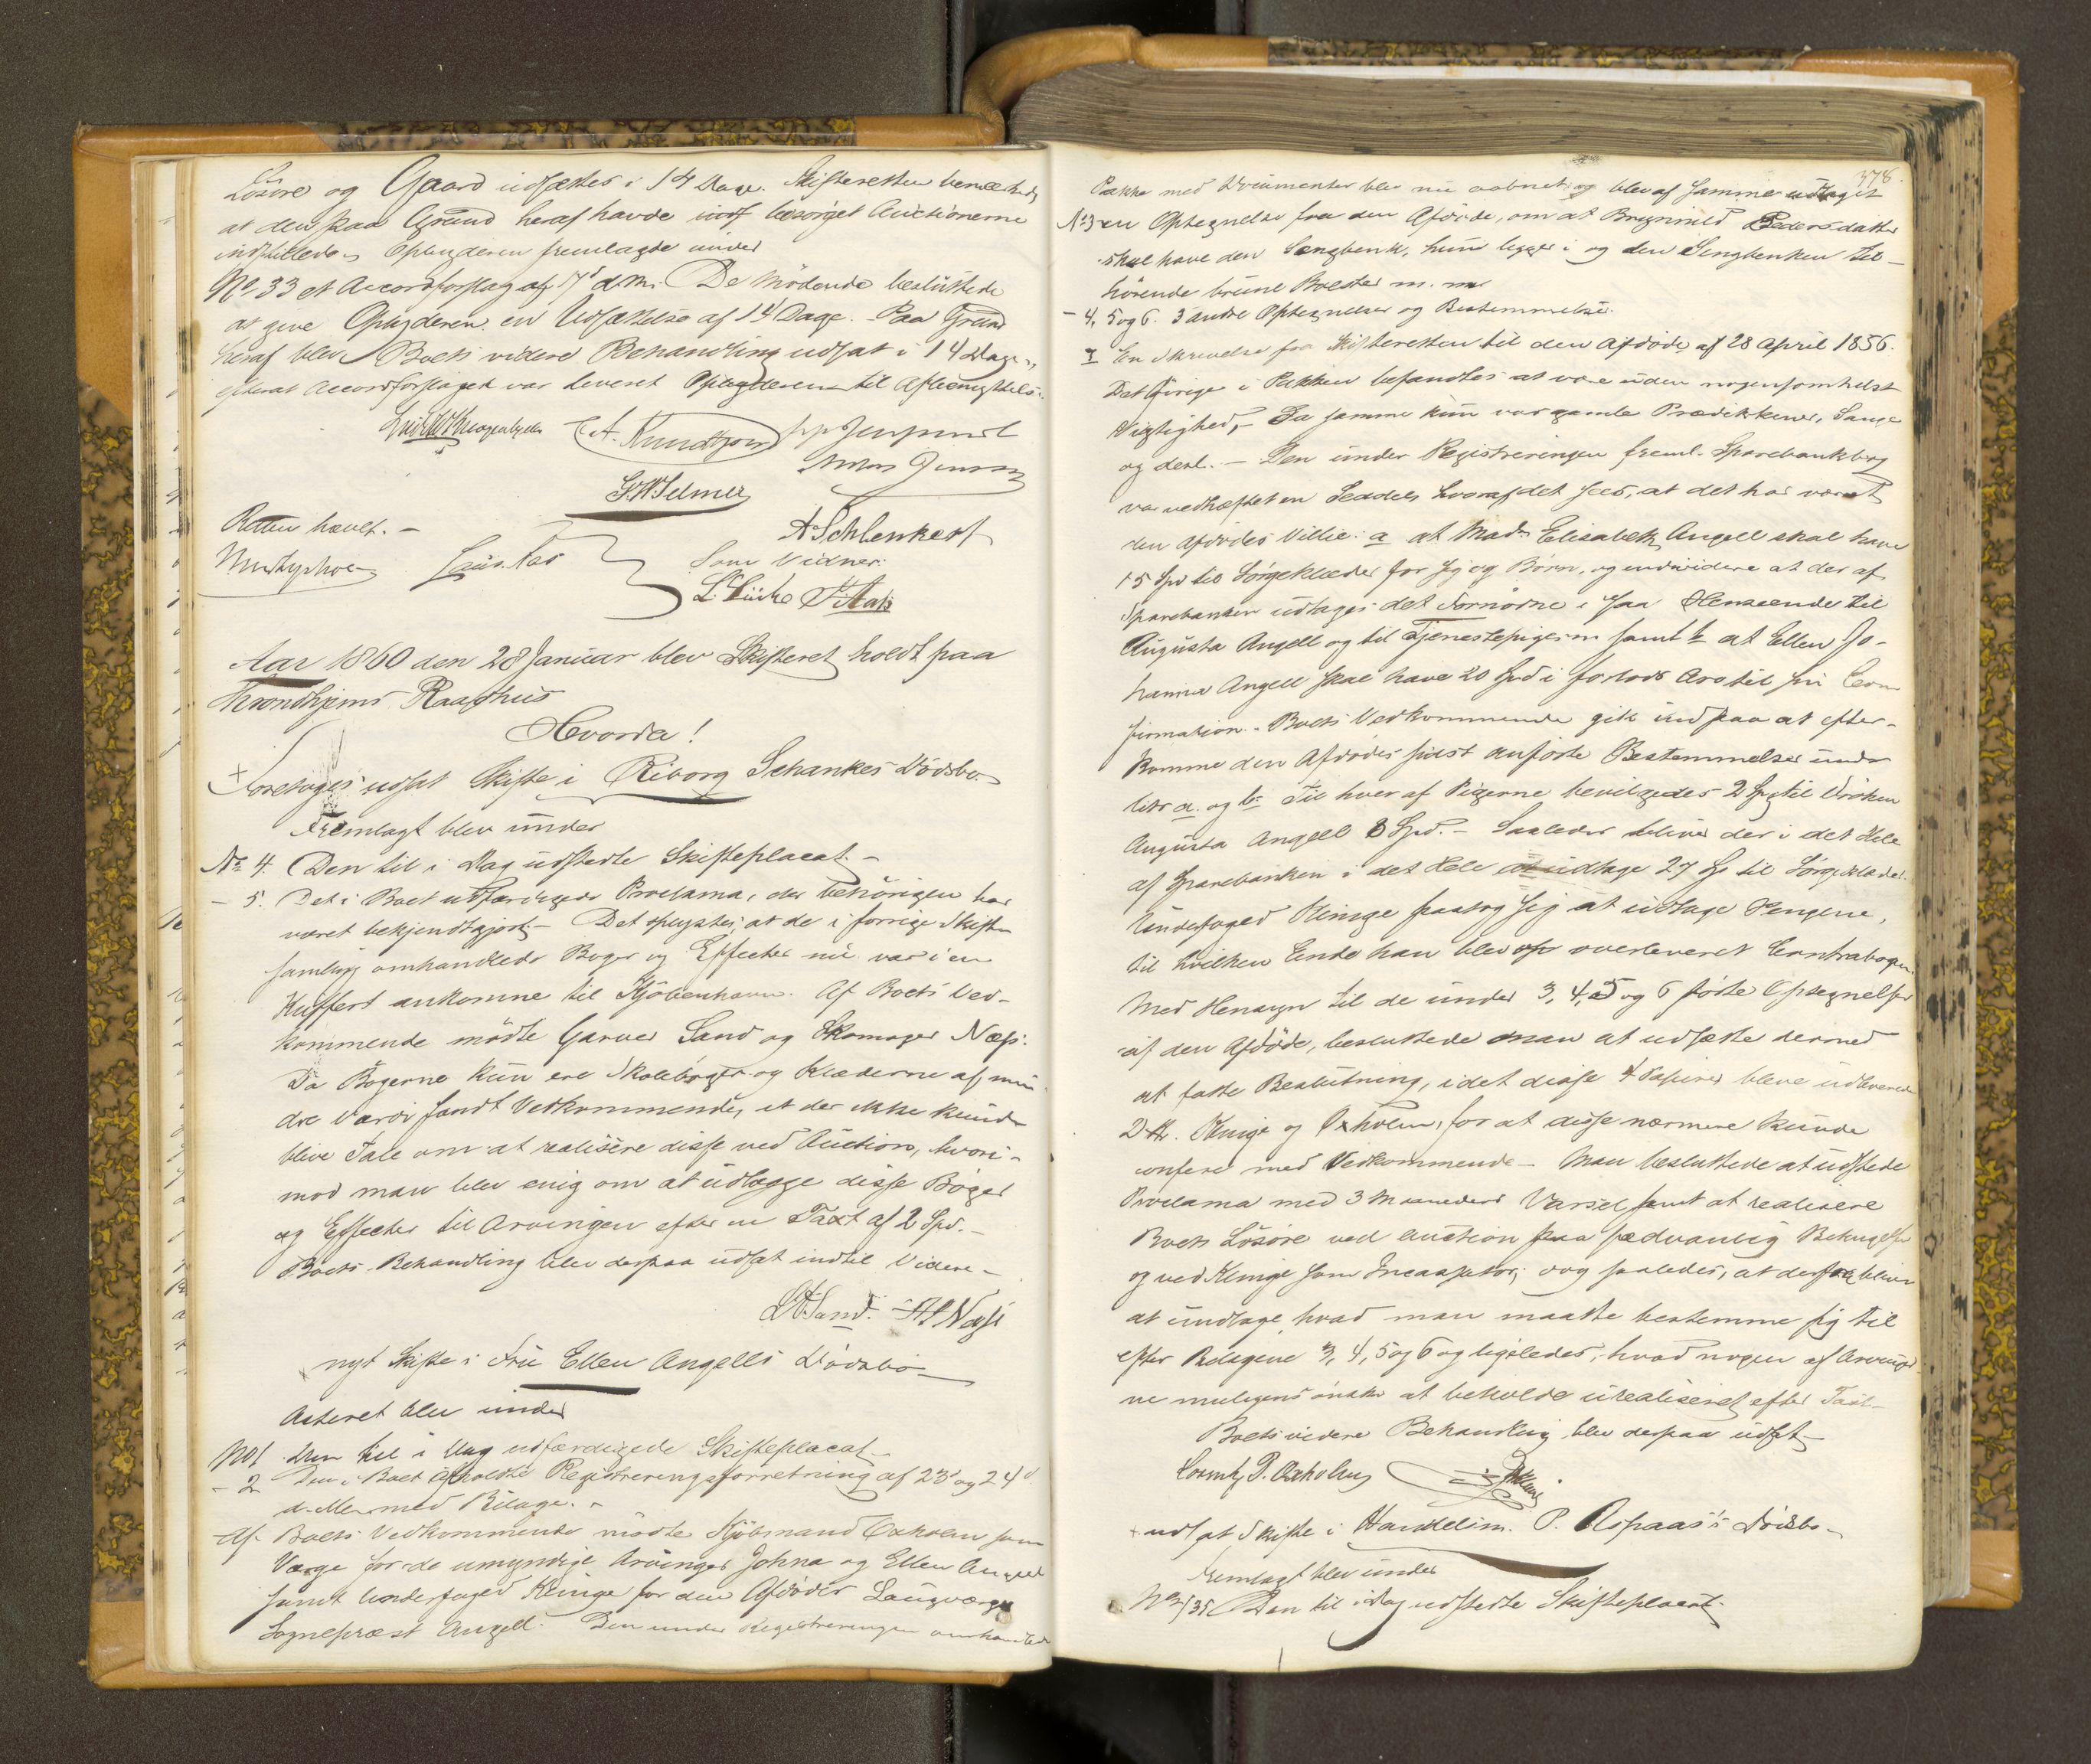 Løsøre og Gaard udsættes i 14 Dage. Skifteretten bemærkede
at den paa Grund heraf havde besørget Auctionerne
indstillede. Opbyderen fremlagde under
No 33 et Accordforslag af 17 d.M. De Mødende besluttede
at give Opbyderen en Udsættelse af 14 Dage. Paa Grund
heraf blev Boets videre Behandling udsat i 14 Dage,
efterat Accordforslaget var leveret Opbyderen til Afbenyttelse.
A. Knudtzon
Jensen
Selmer
A Schlenkert
Retten hævet. –
Som Vidner:
L. Lücke
Aar 1860 den 28 Januar blev Skifteret holdt paa
Throndhjems Raadhus
Hvorda!
Foretoges udsat Skifte i Riborg Schankes Dødsbo
Fremlagt blev under
No 4. Den til i Dag udstedte Skifteplacat. –
– 5. Det i Boet udfærdigede Proclama, der behørigen har
været bekjendtgjort. – Det oplystes, at de i forrige Skifte
samling omhandlede Bøger og Effecter nu var i en
Kuffert ankomne til Kjøbenhavn. Af Boets Ved-
kommende mødte Garver Sand og Skomager Næss.
Da Bøgerne kun ere Skolebøger og Klæderne af min
dre Værdi fandt Vedkommende, at der ikke kunde
blive Tale om at realisere disse ved Auction, hvori-
mod man blev enig om at udlægge disse Bøger
og Effecter til Arvingen efter en Taxt af 2 Spd. –
Boets Behandling blev derpaa udsat indtil Videre –
Sand. Næss
nyt Skifte i Fru Ellen Angells Dødsbo –
Acteret blev under
No 1 Den til i Dag udfærdigede Skifteplacat –
– 2 Den i Boet afholdte Registreringsforretning af 23 og 24
d. M. med Bilage. –
Af Boets Vedkommende mødte Kjøbmand Oxholm som
Værge for de umyndige Arvinger Johna og Ellen Angell
samt Underfoged Klinge for den Afdødes Laugværge
Sognepræst Angell. Den under Registreringen omhandlede
378.
Pakke med Documenter blev nu aabnet og blev af samme udtaget
No 3 en Optegnelse fra den Afdøde, om at Brynnild Pedersdatter
skal have den Sengbenk, hun ligger i og den Sengbenken til-
hørende brune Bolster m. m.
– 4, 5 og 6. 3 andre Optegnelser og Bestemmelser.
En Skrivelse fra Skifteretten til den Afdøde af 28 April 1856.
Det Øvrige i Pakken befandtes at være uden nogensomhelst
Vigtighed, – Da samme kun var gamle Prædikkener, Sange
og desl. – Den under Registreringen freml. Sparebankbog
var vedhæftet en Seddel, hvoraf det sees, at det har været
den Afdødes Villie: a at Mad. Elisabeth Angell skal have
15 Spd til Sørgeklæder for sig og Børn, og endvidere at der af
Sparebanken udtages det Fornødne i saa Henseende til
Augusta Angell og til Tjenestepigerne samt b at Ellen Jo-
hanna Angell skal have 20 Spd i forlods Arv til sin Con
firmation. Boets Vedkommende gik ind paa at efter-
komme den Afdødes sidst anførte Bestemmelser under
litr a. og b. Til hver af Pigerne bevilgedes 2 Spd til Frøken
Augusta Angell 8 Spd. – Saaledes bliver der i det Hele
af Sparebanken i det Hele at udtage 27 Sp til Sørgeklæder.
Underfoged Klinge paatog sig at udtage Pengene,
til hvilken Ende han blev overleveret Contrabogen.
Med Hensyn til de under 3, 4, 5 og 6 førte Optegnelser
af den Afdøde, besluttede man at udsætte dermed
at fatte Beslutning, idet disse 4 Papirer bleve udleverede
D Hr. Klinge og Oxholm, for at disse nærmere kunde
conferere med Vedkommende – Man besluttede at udstede
Proclama med 3 Maaneders Varsel samt at realisere
Boets Løsøre ved Auction paa sædvanlig
og ved Klinge som Incassator; dog saaledes, at derfra bliver
at undtage, hvad man maatte bestemme sig til
efter Bilagene 3, 4, 5 og 6 og ligeledes, hvad nogen af Arvinger
ne muligens ønsker at beholde urealiseret efter Taxt. –
Boets videre Behandling blev derpaa udsat –
P. Oxholm
udsat Skifte i Handelsm. P. Aspaas's Dødsbo –
Fremlagt blev under
No 35 Den til i Dag udstedte Skifteplacat